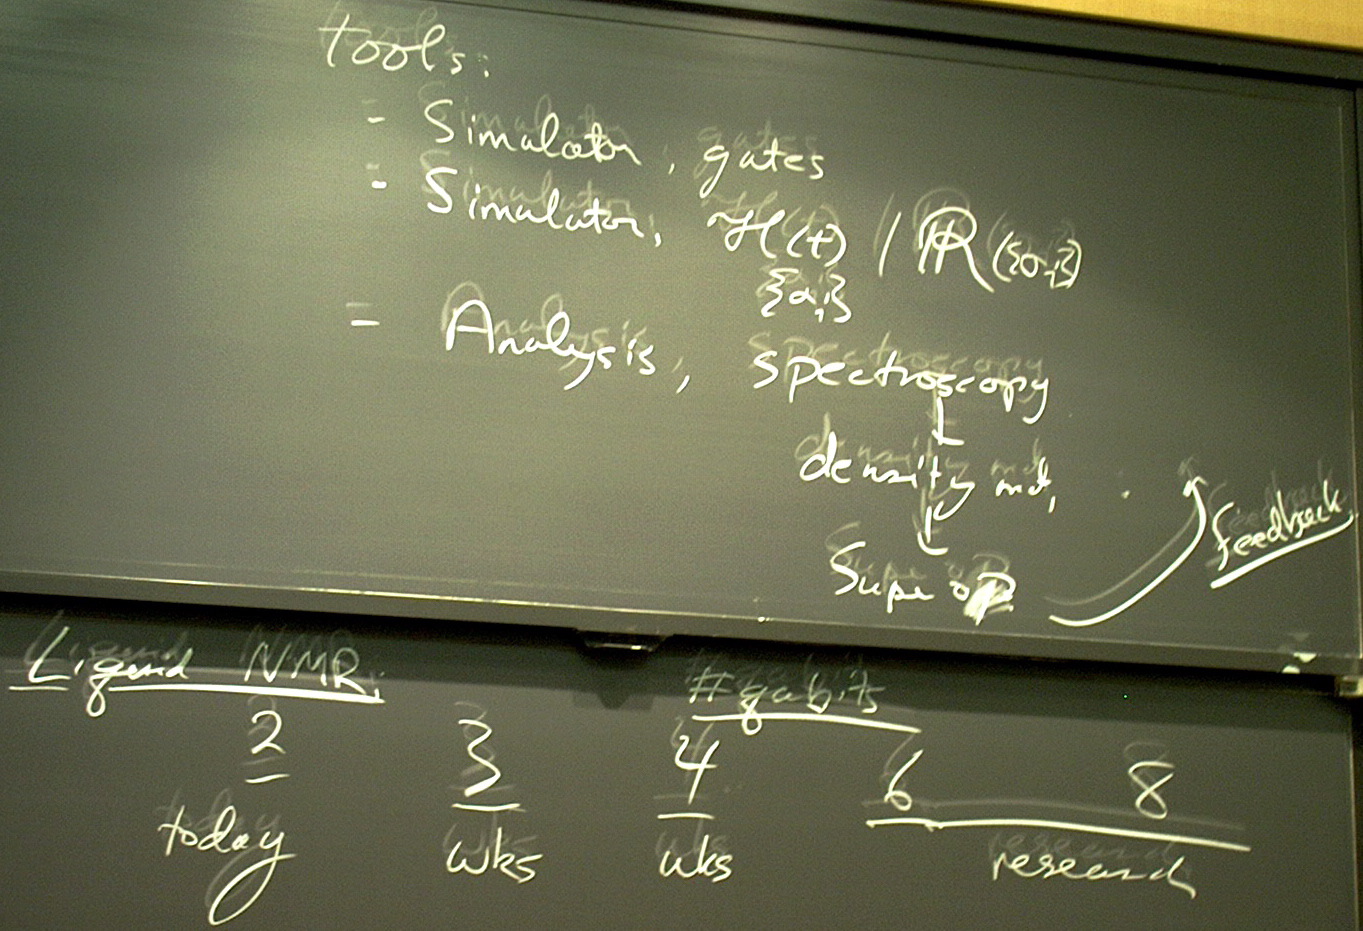 tools:
- Simulator, gates
- Simulator, H(t) / R({σ,i})
{α,i}
- Analysis, spectroscopy
density mt,
Super op
feedback
Liquid NMR
#qubits
2 3 4 6 8
today wks wks research